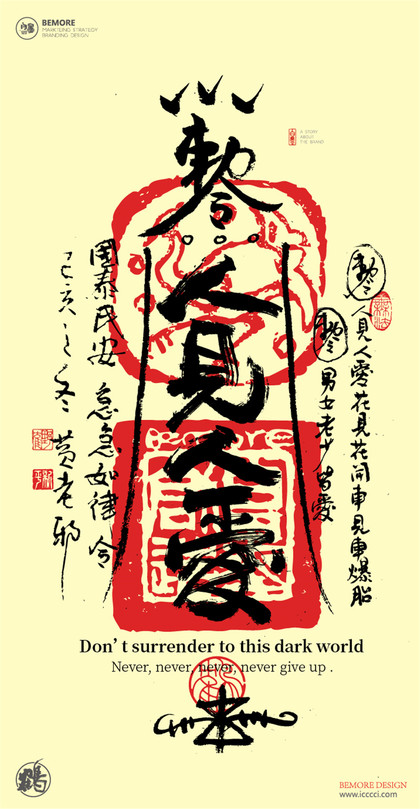 BEMORE
MARKETING STRATEGY
BRANDING DESIGN
A STORY
ABOUT
THE BRAND
敕令
人見人愛
敕令人見人愛花見花開車見車爆胎
敕令男女老少皆愛
國泰民安 急急如律令
己亥之冬 黄老邪
Don’t surrender to this dark world
Never, never, never, never give up .
鶴
BEMORE DESIGN
www.icccci.com